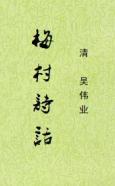 梅村詩話
清 吴伟业